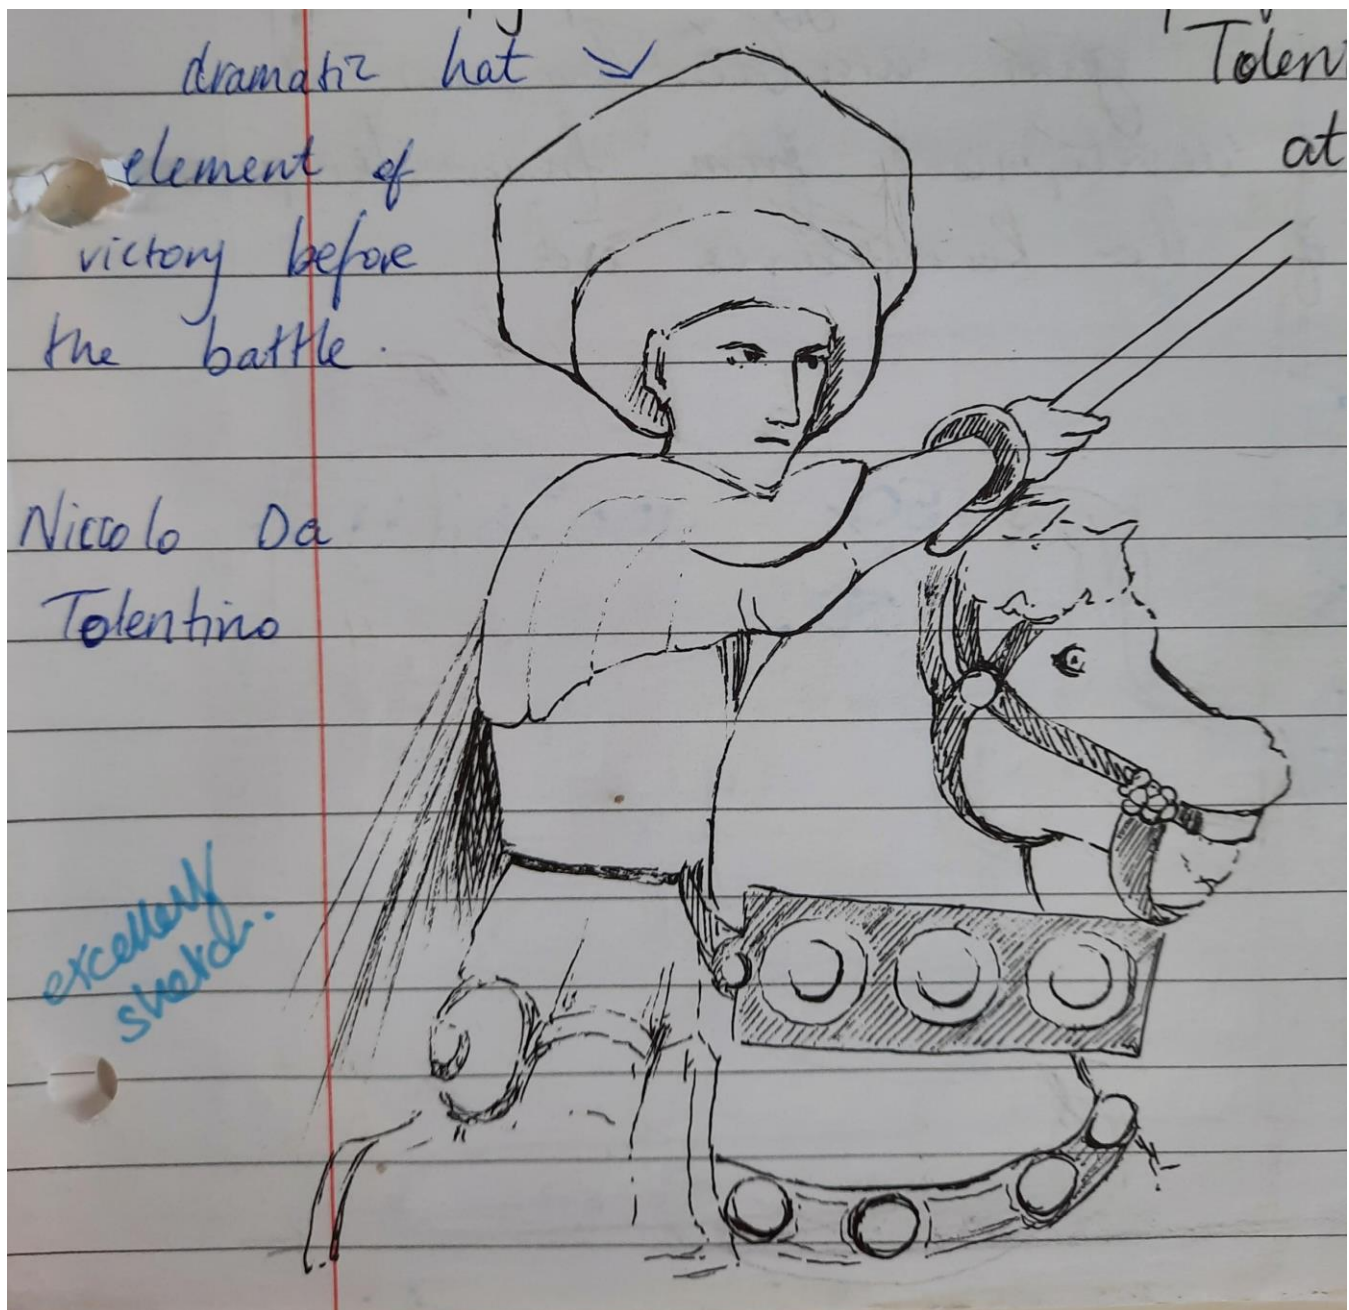 dramatic hat
element of
victory before
the battle.
Niccolo Da
Tolentino
Tolent
at
excellent
sketch.